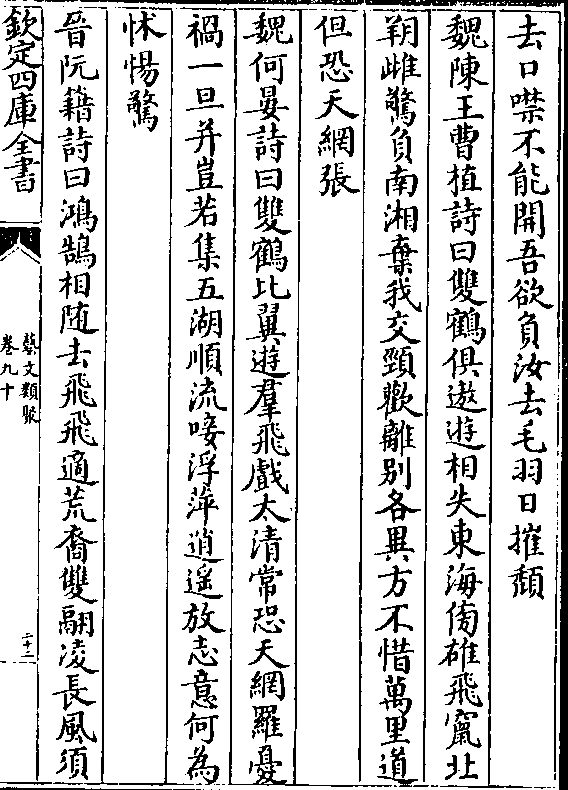 去口噤不能開吾欲負汝去毛羽日摧頹
魏陳王曹植詩曰雙鶴俱遨遊相失東海傍雄飛竄北
朔雌驚負南湘棄我交頸歡離别各異方不惜萬里道
但恐天網張
魏何晏詩曰雙鶴比翼遊羣飛戲太清常恐天網羅憂
禍一旦并豈若集五湖順流唼浮萍逍遥放志意何為
怵惕驚
晉阮籍詩曰鴻鵠相随去飛飛適荒裔雙翮凌長風須
欽定四庫全書
藝文類聚
卷九十
二十二